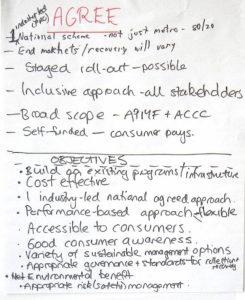 industry led (ACRC)
AGREE
- National scheme - not just metro - 80/20
- End markets/recovery will vary
- Staged roll-out - possible
- Inclusive approach - all stakeholders
- Broad scope - + ACCC
- Self-funded - consumer pays.
OBJECTIVES
• Build on existing programs/infrastructure
• Cost effective
• 1 industry-led national agreed approach.
• Performance-based approach - flexible
• Accessible to consumers.
• Good consumer awareness.
• Variety of sustainable management options
• Appropriate governance + standards for collection + recovery
• Net Environmental benefit
• Appropriate risk (safety) management